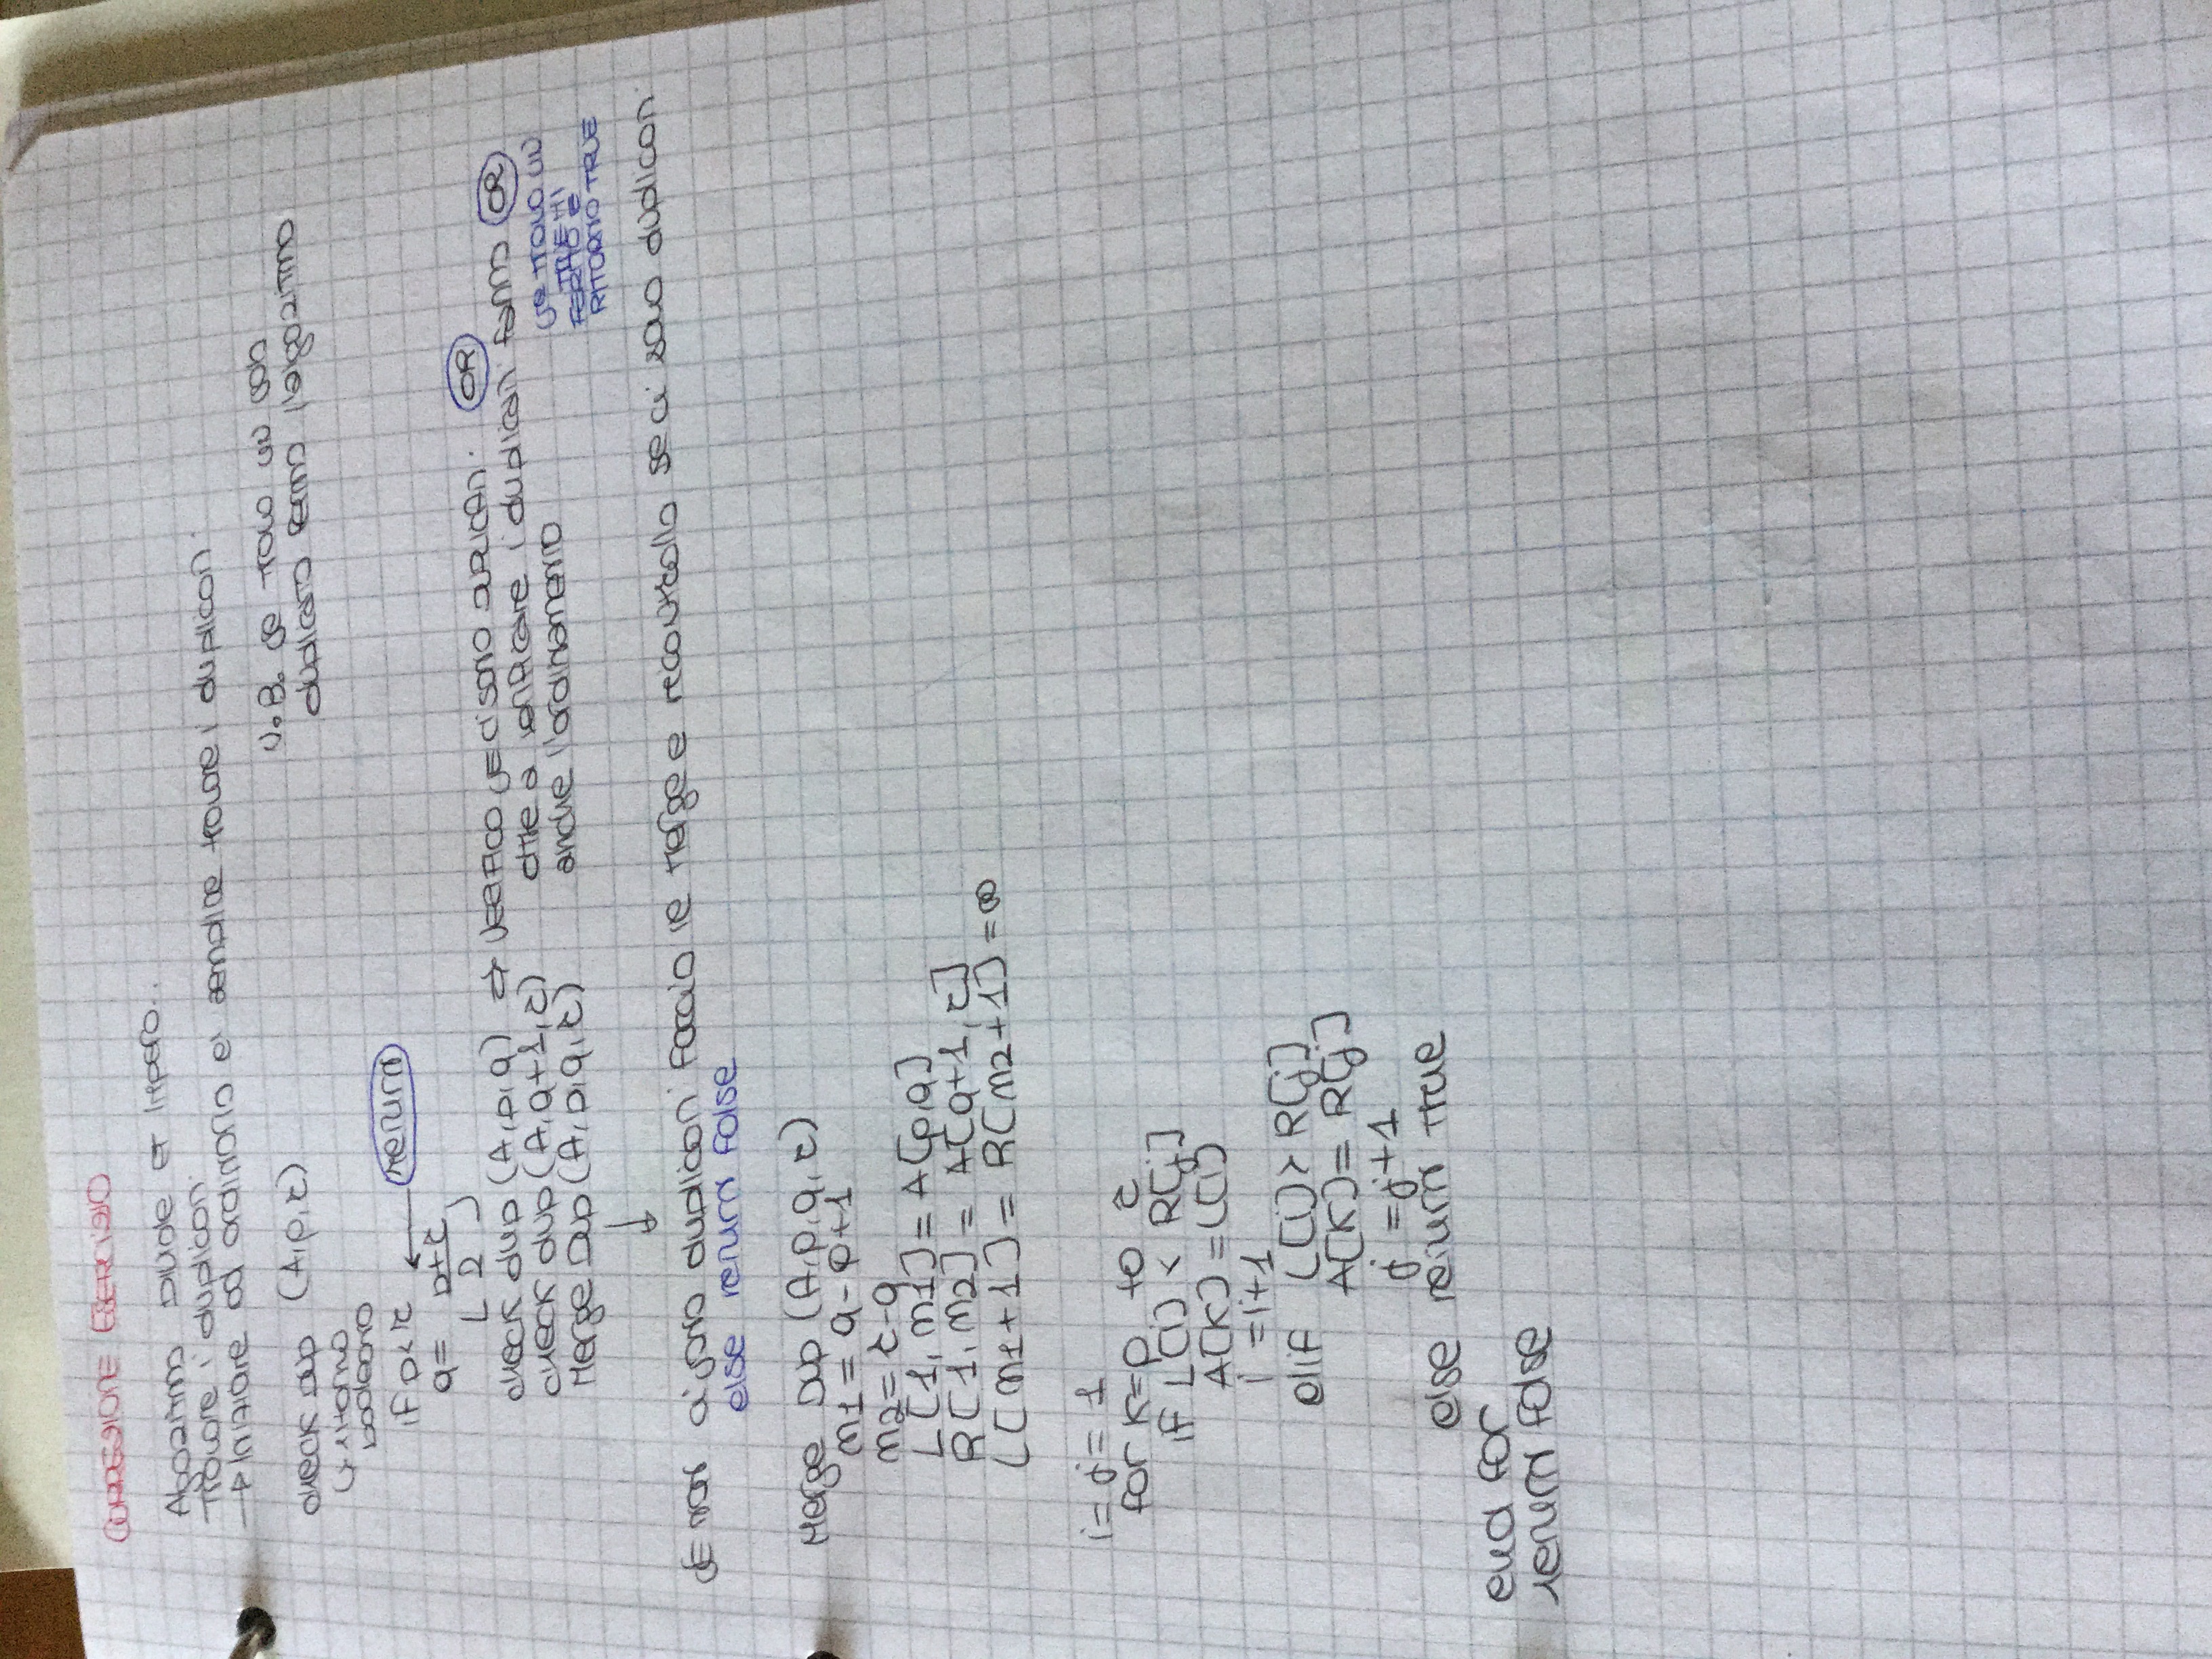 CORREZIONE ESERCIZIO
Algoritmo Divide et Impera..
Trovare i duplicati
→ Iniziare ad ordinarlo e' semplice trovare i duplicati
N.B. se trovo un solo
duplicato fermo l'algoritmo
check Dup (A,p,r)
↳ ritorno
booleano
if p<r ← return
q= ⌊p+r/2⌋
check dup (A,p,q) => VERIFICO SE CI SONO DUPLICATI OR
check dup (A,q+1,r) oltre a verificare i duplicati fanno OR
Merge Dup (A,p,q,r) anche l'ordinamento
SE TROVO UN
TRUE MI
FERMO E
RITORNO TRUE
SE non ci sono duplicati faccio le merge e ricontrollo se ci sono duplicati
else return false
Merge Dup (A,p,q,r)
m1 = q-p+1
m2 = r-q
L[1,m1] = A[p,q]
R[1,m2] = A[q+1,r]
L[m1+1] = R[m2+1] = ∞
i=j= 1
for k=p to r
if L[i] < R[j]
A[K] = L[i]
i =i+1
elif L[i] > R[j]
A[K] = R[j]
j =j+1
else return true
end for
return false